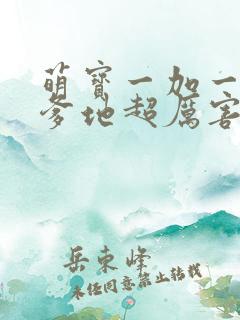 萌宝一加一
爹地超厉害
岳束峰
未经同意禁止转载